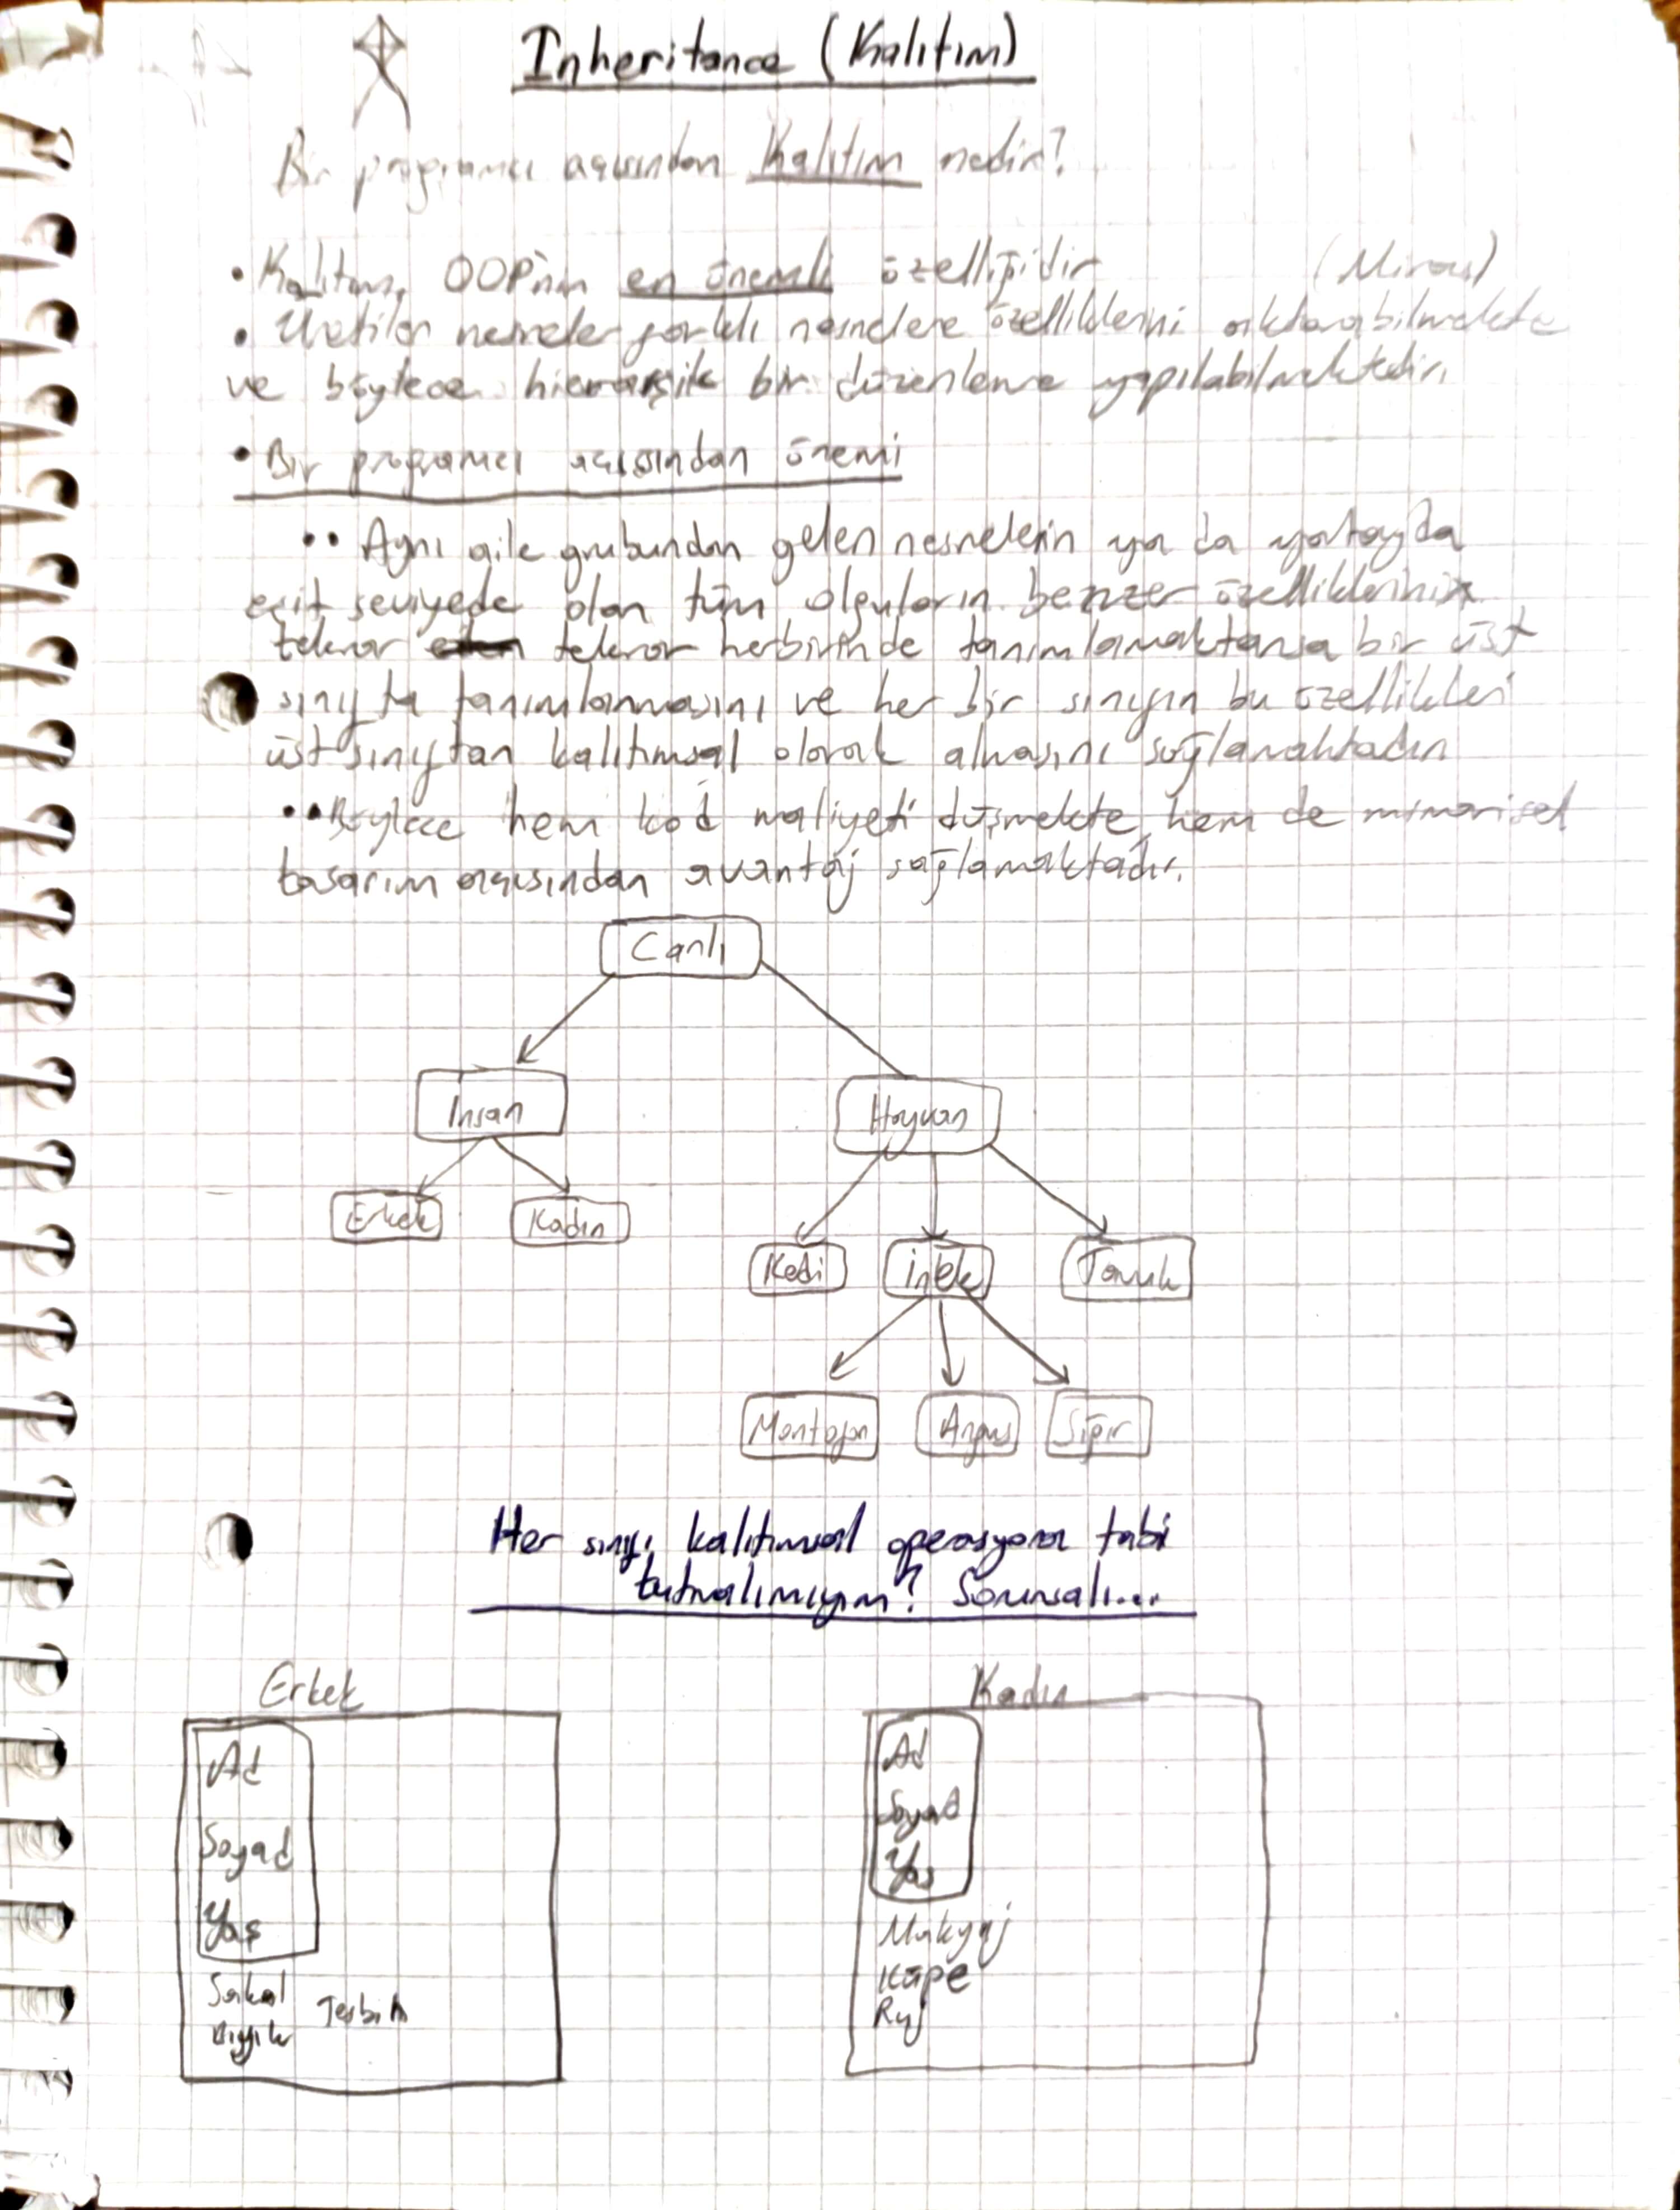 Inheritance (Kalıtım)
Bir programcı açısından Kalıtım nedir?
• Kalıtım, OOP'nin en önemli özelliğidir (Miras)
• Üretilen nesneler farklı nesnelere özelliklerini aktarabilmekte
ve böylece hierarşik bir düzenleme yapılabilmektedir.
• Bir programcı açısından önemi
•• Aynı aile grubundan gelen nesnelerin ya da yatayda
eşit seviyede olan tüm olguların benzer özelliklerinin
tekrar tekrar herbirinde tanımlamaktansa bir üst
sınıfta tanımlanmasını ve her bir sınıfın bu özellikleri
üst sınıftan kalıtımsal olarak almasını sağlamaktadır
•• Böylece hem kod maliyeti düşmekte, hem de mimarisel
tasarım açısından avantaj sağlamaktadır.
Canlı
İnsan Hayvan
Erkek Kadın
Kedi İnek Tavuk
Montofon Angus Sığır
Her sınıfı kalıtımsal operasyona tabi
tutmalımıyım? Sorunsalı...
Erkek Kadın
Ad Ad
Soyad Soyad
Yaş Yaş
Sakal Tesbih Makyaj
Bıyık Küpe
Ruj